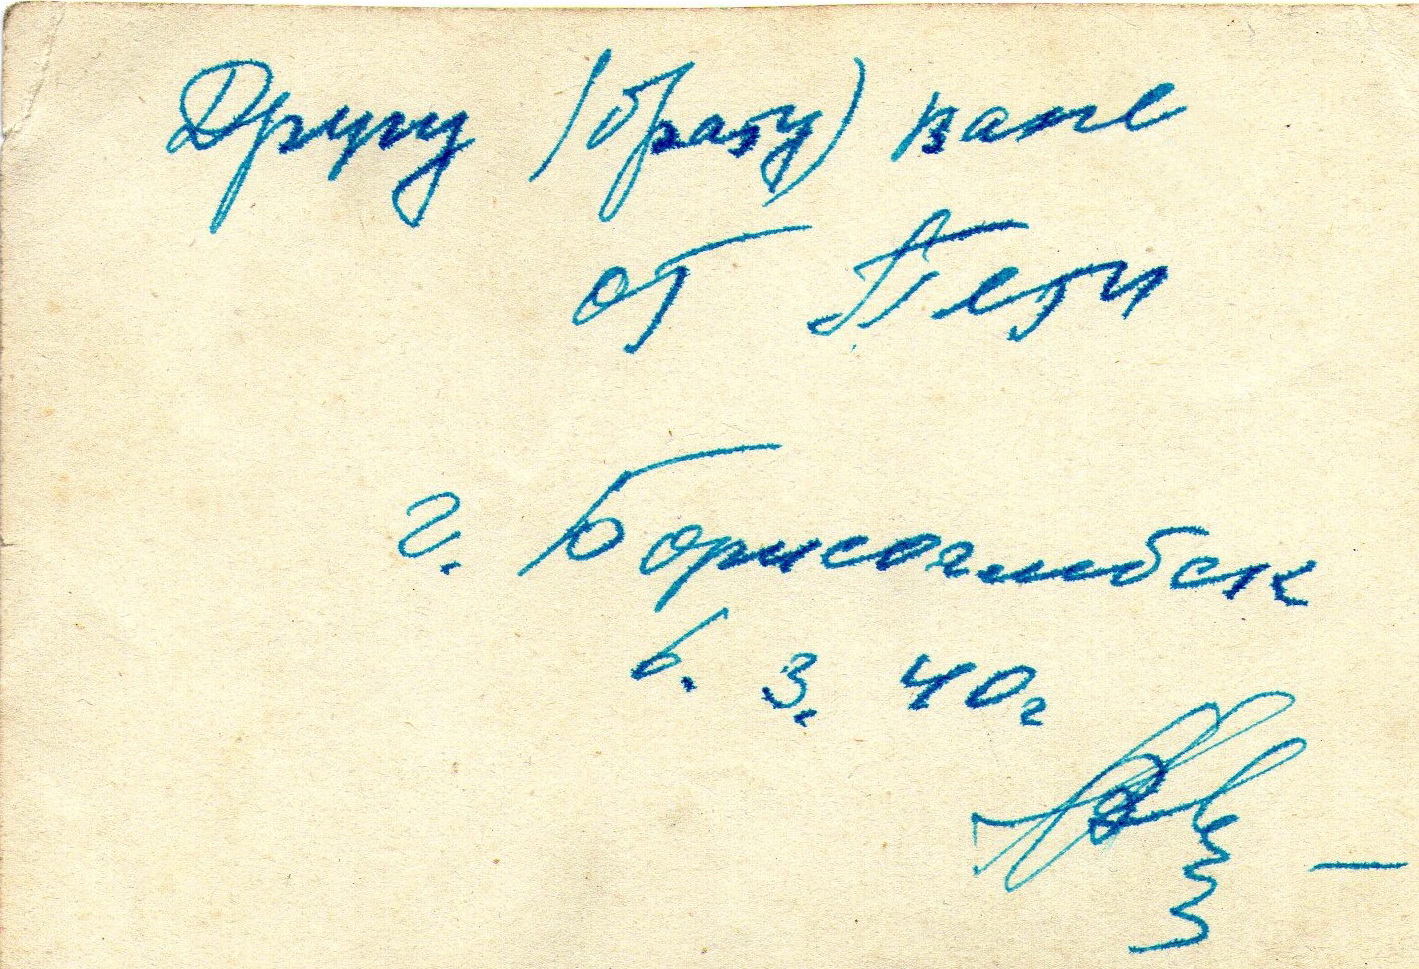 Другу (брату) Ване
от Пети
г. Борисоглебск
6. 3. 40г